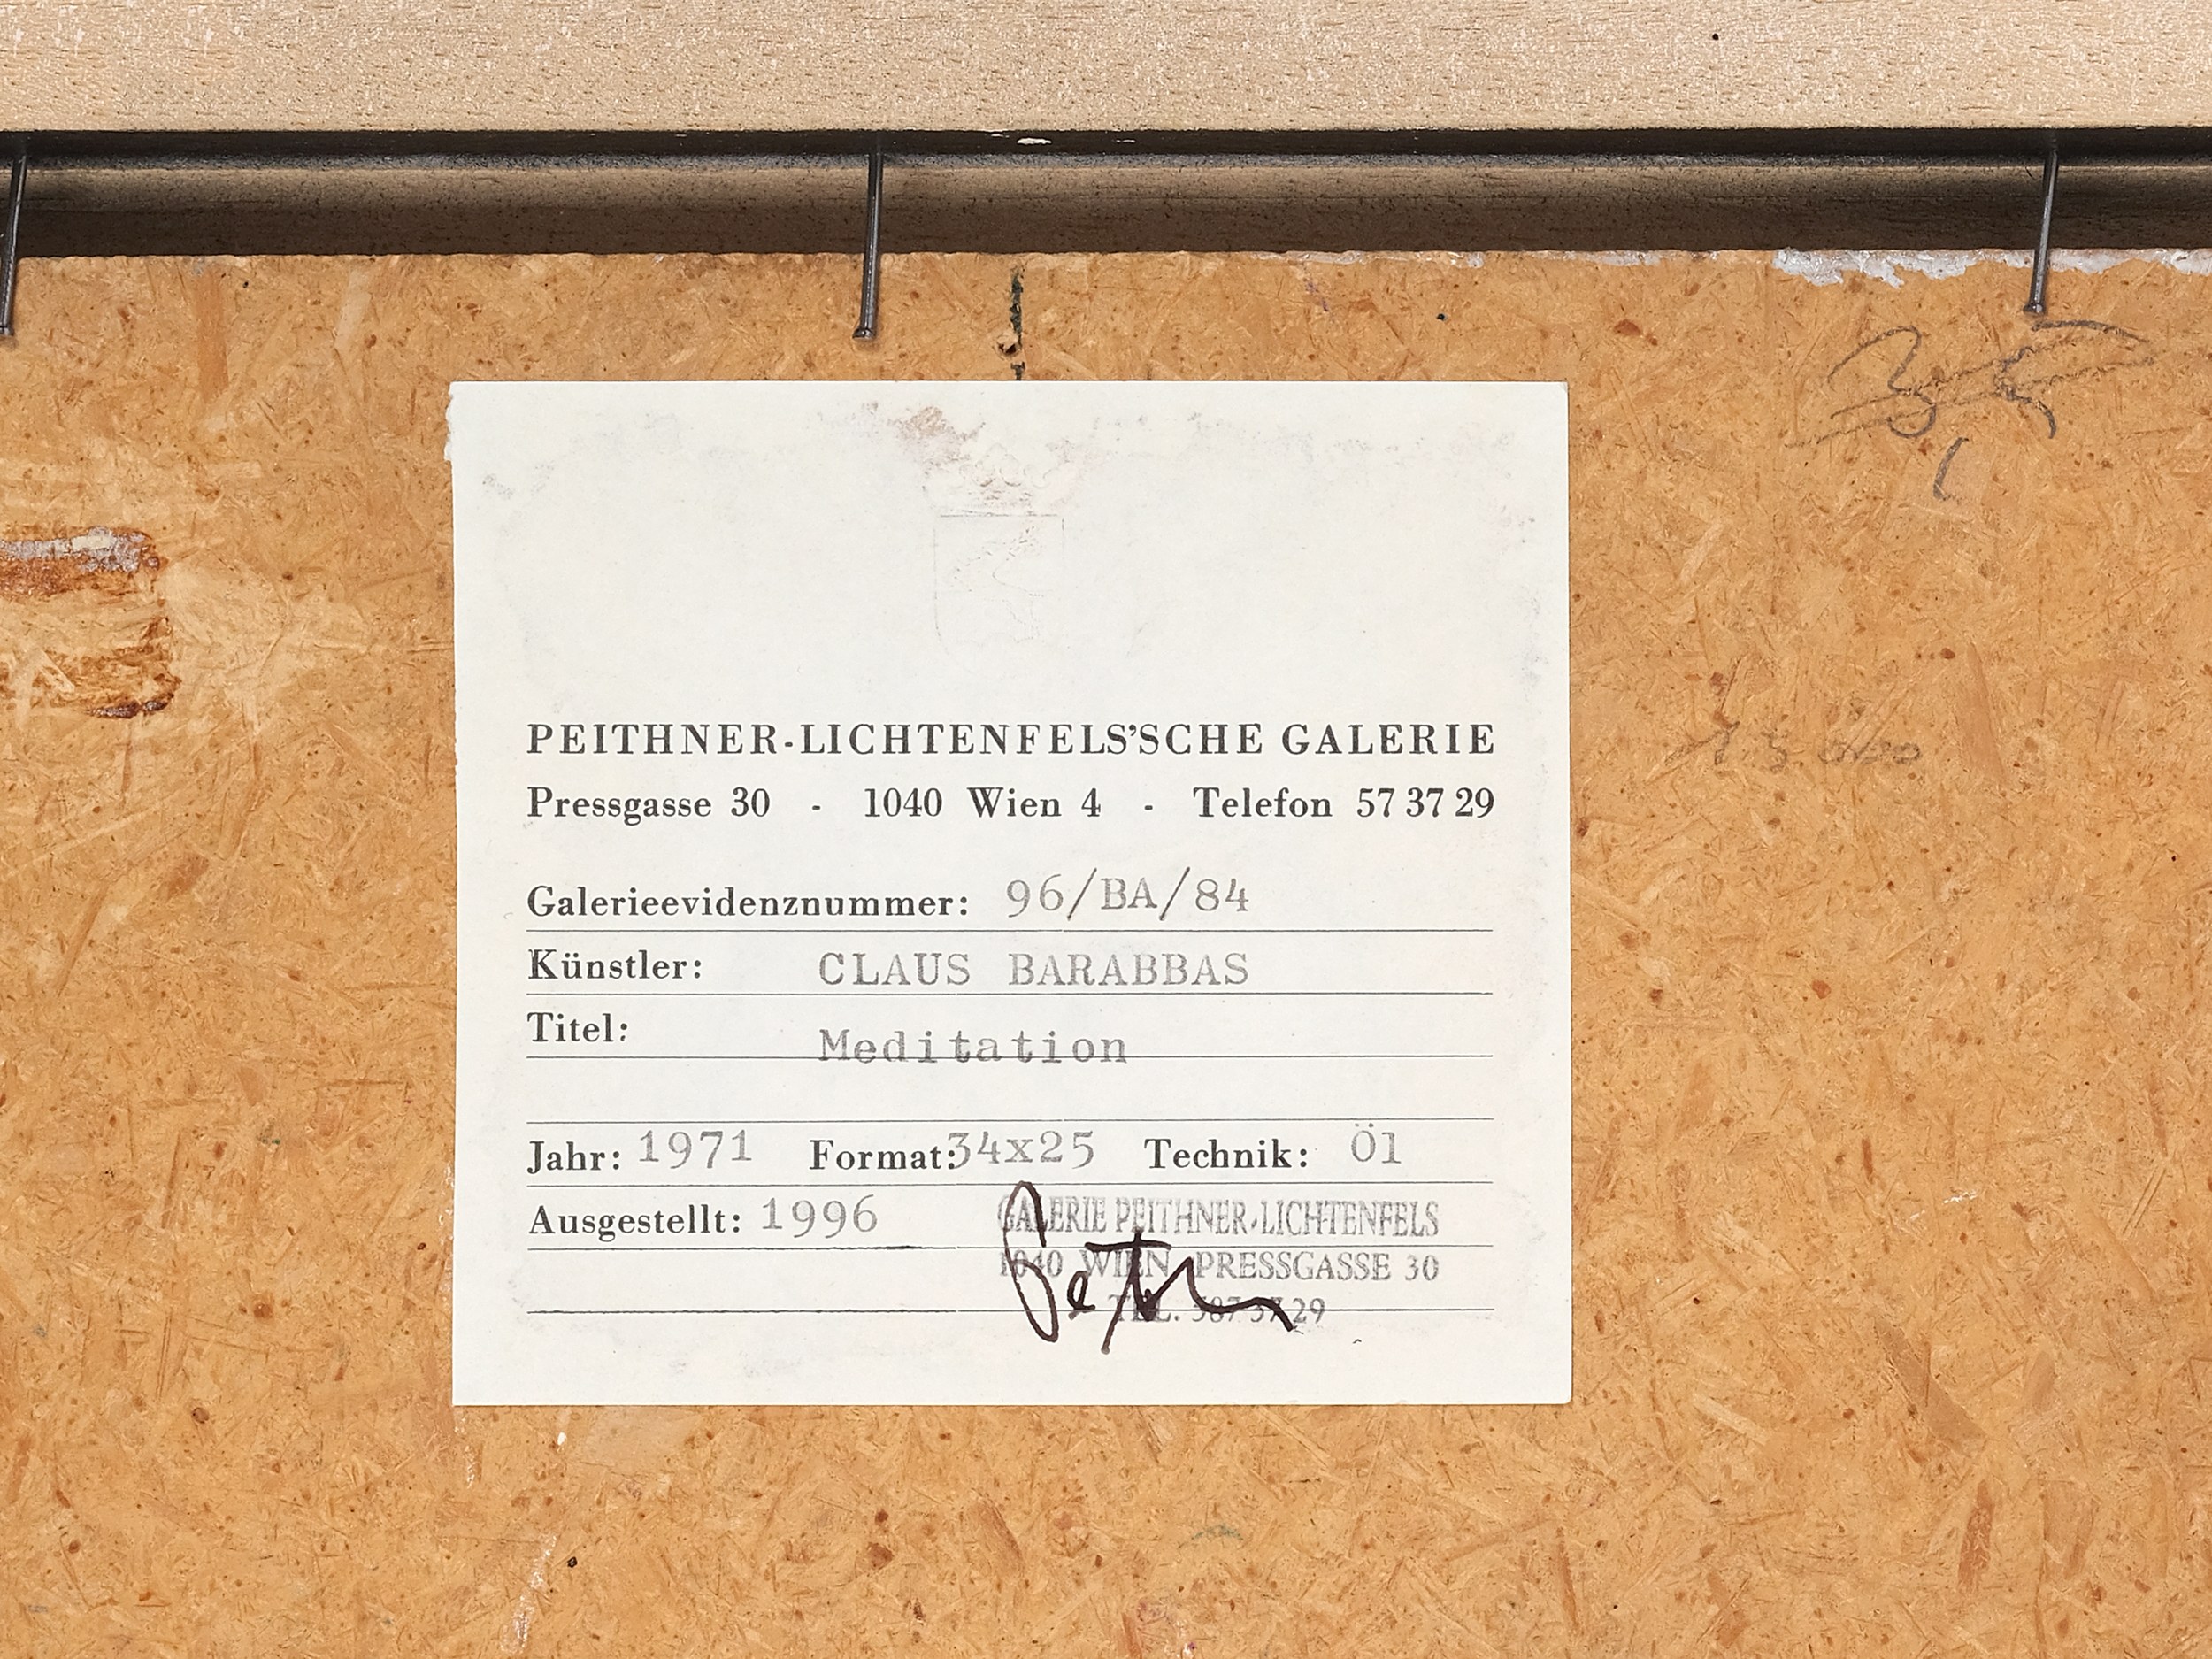 PEITHNER-LICHTENFELS'SCHE GALERIE
Pressgasse 30 - 1040 Wien 4 - Telefon 57 37 29
Galerieevidenznummer: 96/BA/84
Künstler: CLAUS BARABBAS
Titel: Meditation
Jahr: 1971 Format: 34x25 Technik: Öl
Ausgestellt: 1996
GALERIE PEITHNER-LICHTENFELS
1040 WIEN, PRESSGASSE 30
TEL. 587 37 29